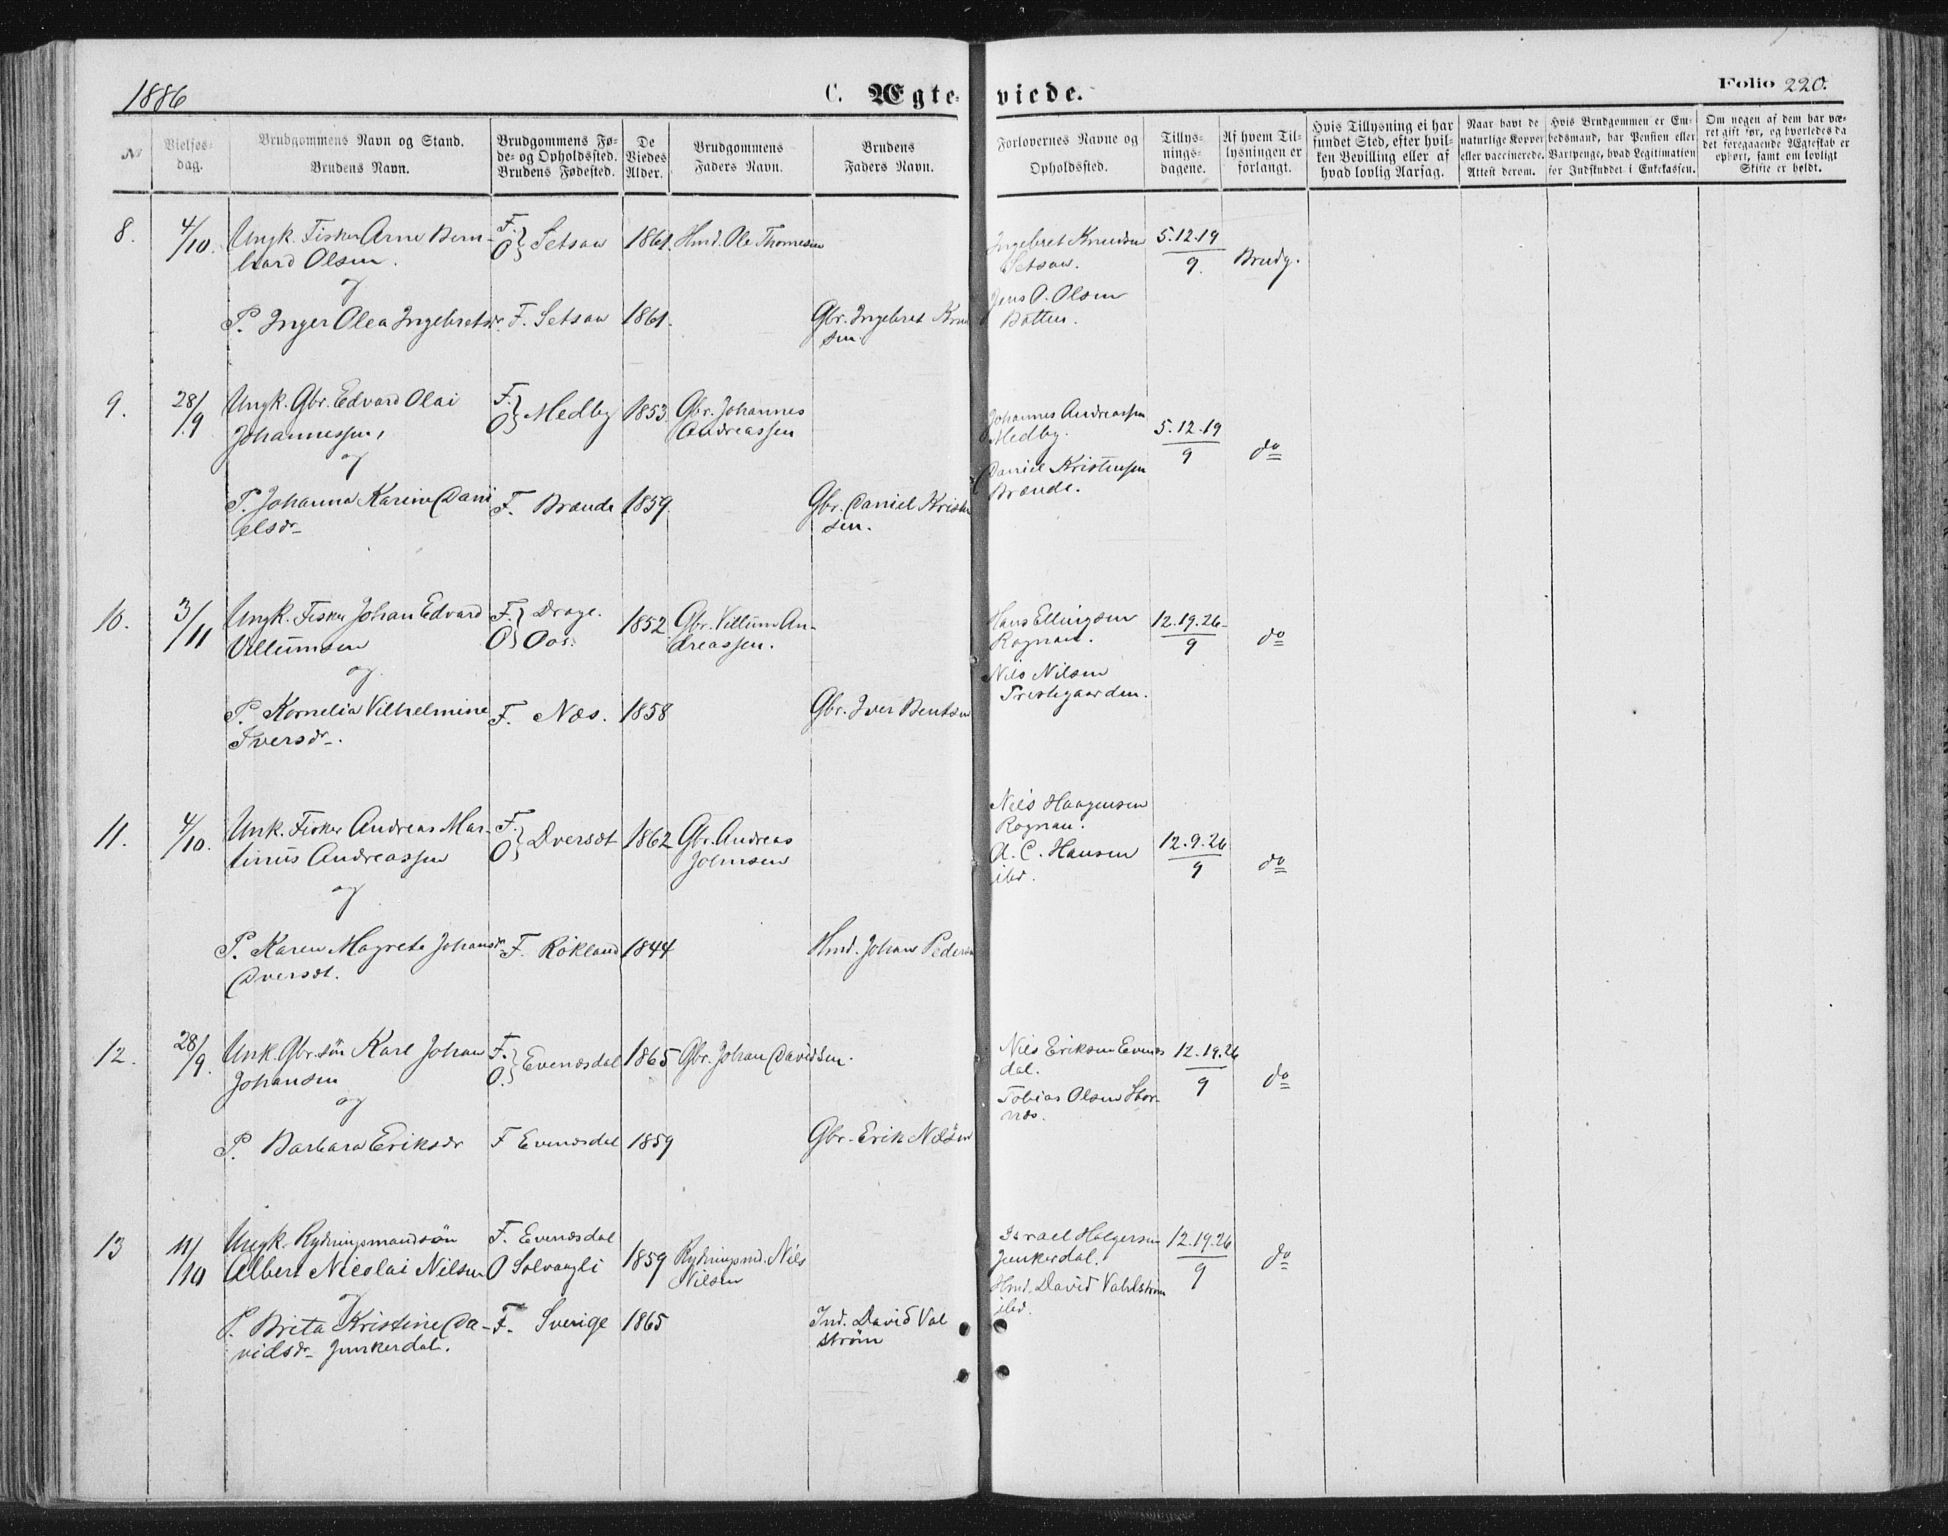 1886
C. Ægte-
viede.
Folio 220.
No
Vielses-
dag.
Brudgommens Navn og Stand.
Brudens Navn.
Brudgommens Fø-
de- og Opholdssted.
Brudens Fødested.
De
Viedes
Alder.
Brudgommens
Faders Navn.
Brudens
Faders Navn.
Forlovernes Navne og
Opholdssted.
Tillys-
nings-
dagene.
Af hvem Til-
lysningen er
forlangt.
Hvis Tillysning ei har
fundet Sted, efter hvil-
ken Bevilling eller af
hvad lovlig Aarsag.
Naar havt de
naturlige Kopper
eller vaccinerede.
Attest derom.
Hvis Brudgommen er Em-
bedsmand, har Pension eller
Vartpenge, hvad Legitimation
for Indskuddet i Enkekassen.
Om nogen af dem har væ-
ret gift før, og hvorledes da
det foregaaende Ægteskab er
ophørt, samt om lovligt
Skifte er holdt.
8.
4/10.
Ungk. Fisker Arne Bern-
hard Olsen.
og
P. Inger Olea Ingebretsdr.
F.
O } Setsaa
F. Setsaa
1861.
1861.
Hmd. Ole Thomesen
Gbr. Ingebret Knud
sen
Ingebret Knudsen
Setsaa.
Jens O. Olsen
Botten.
5.12.19
9.
Brudg.
9.
28/9
Ungk. Gbr. Edvard Olai
Johannessen,
og
P. Johanna Karine Dani
elsdr
F.
O } Medby
F. Brænde
1853.
1859.
Gbr. Johannes
Andreassen
Gbr. Daniel Kristen
sen.
Johannes Andreassen
Medby.
Daniel Kristensen
Brænde.
5.12.19
9
do
10.
3/11
Ungk. Fisker Johan Edvard
Villumsen
og
P. Kornelia Vilhelmine
Iversdr.
F. } Drage.
O } Oos.
F. Næs.
1852.
1858
Gbr. Villum An-
dreassen.
Gbr. Iver Bentsen
Hans Ellingsen
Rognan.
Nils Nilsen
Prestegaarden.
12.19.26-
9
do
11.
4/10.
Unk. Fisker Andreas Mar-
tinus Andreassen
og
P. Karen Magrete Johansdr
Dversdt.
F.
O } Dversdt
F. Rökland
1862
1844
Gbr. Andreas
Johnsen
Hmd. Johan Pedersen
Nils Haagensen
Rognan.
A. C. Hansen
ibd.
12.9.26
9
do
12.
28/9.
Unk. Gbr.søn Karl Johan
Johansen
og
P. Barbara Eriksdr
F.
O. } Evenesdal
F Evenesdal
1865
1859
Gbr. Johan Davidsen.
Gbr. Erik Nilsen
Nils Eriksen Evenes
dal.
Tobias Olsen Stor-
næs.
12.19.26
9
do
13
11/10
Ungk. Rydningsmandsön
Albert Nicolai Nilsen
og
P. Brita Kristine Da-
vidsdr Junkerdal.
F. Evenesdal
O Solvaagli
F. Sverige
1859
1865
Rydningsmd. Nils
Nilsen
Ind. David Val
strøm
Israel Holgersen
Junkerdal.
Hmd. David Vahlstrøm
ibd.
12.19.26
9
do